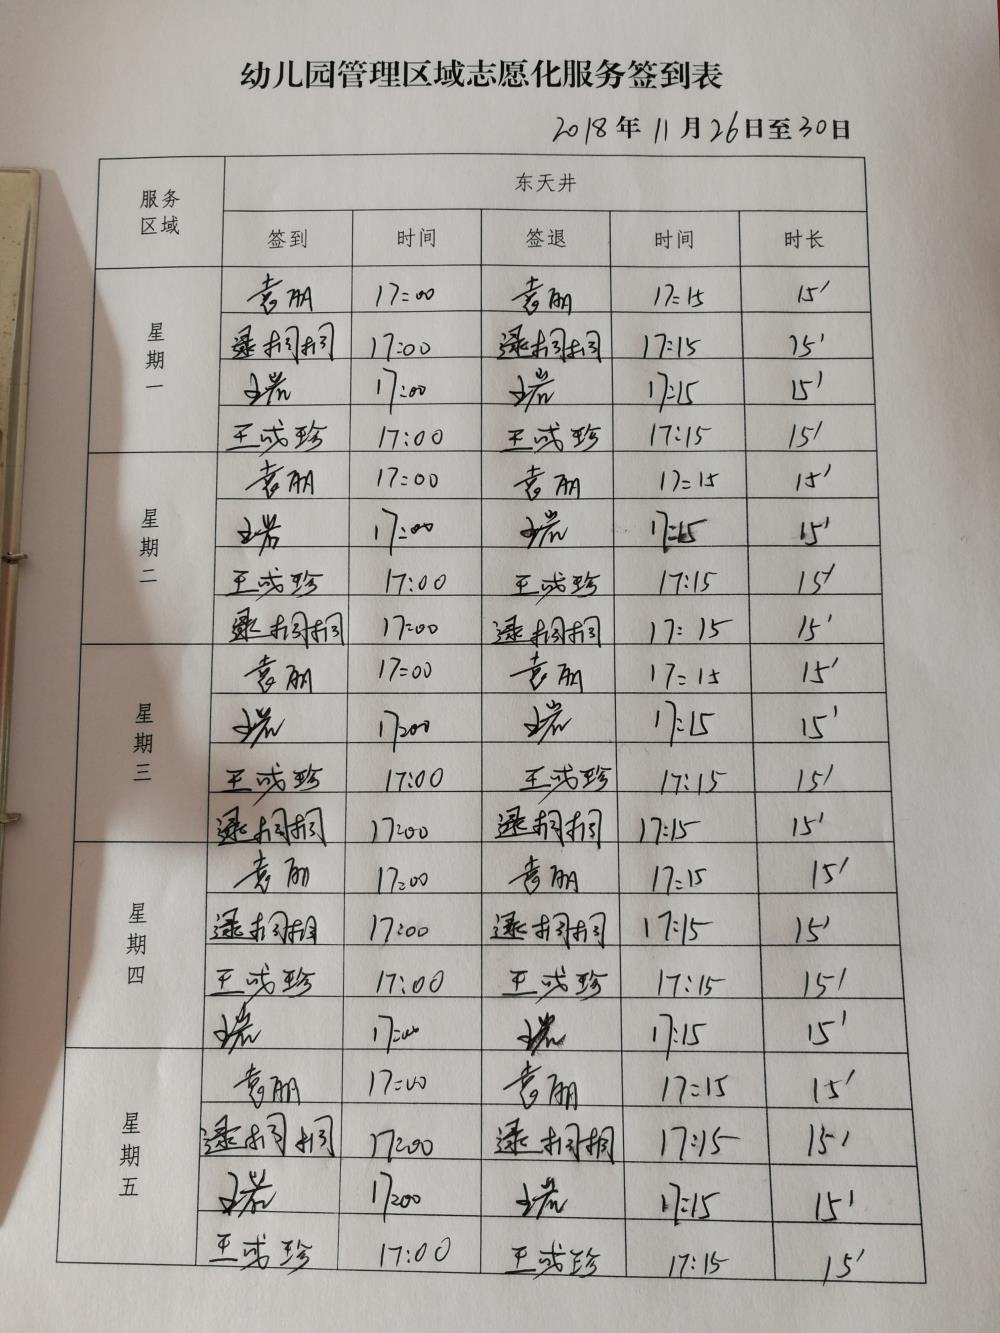 幼儿园管理区域志愿化服务签到表
2018年11月26日至30日
服务区域 东天井
签到 时间 签退 时间 时长
星期一
袁朋 17:00 袁朋 17:15 15'
逯栩栩 17:00 逯栩栩 17:15 15'
王岩 17:00 王岩 17:15 15'
王成珍 17:00 王成珍 17:15 15'
星期二
袁朋 17:00 袁朋 17:15 15'
王岩 17:00 王岩 17:15 15'
王成珍 17:00 王成珍 17:15 15'
17:00 17:15 15'
星期三
袁朋 17:00 袁朋 17:15 15'
17:00 17:15 15'
王成珍 17:00 王成珍 17:15 15'
17:00 17:15 15'
星期四
袁朋 17:00 袁朋 17:15 15'
17:00 17:15 15'
王成珍 17:00 王成珍 17:15 15'
17:00 17:15 15'
星期五
袁朋 17:00 袁朋 17:15 15'
17:00 17:15 15'
17:00 17:15 15'
王成珍 17:00 王成珍 17:15 15'